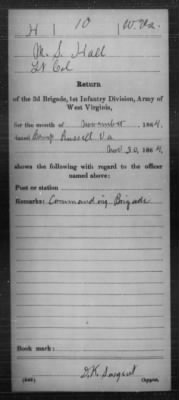 H | 10 | W.Va.
M. S. Hall
Lt Col
Return
of the 3d Brigade, 1st Infantry Division, Army of
West Virginia,
for the month of November , 1864.
dated Camp Russell Va
Nov 30, 1864,
shows the following with regard to the officer
named above:
Post or station
Remarks: Commanding Brigade
Book mark:
D.K. Sargent
(546) Copyist.